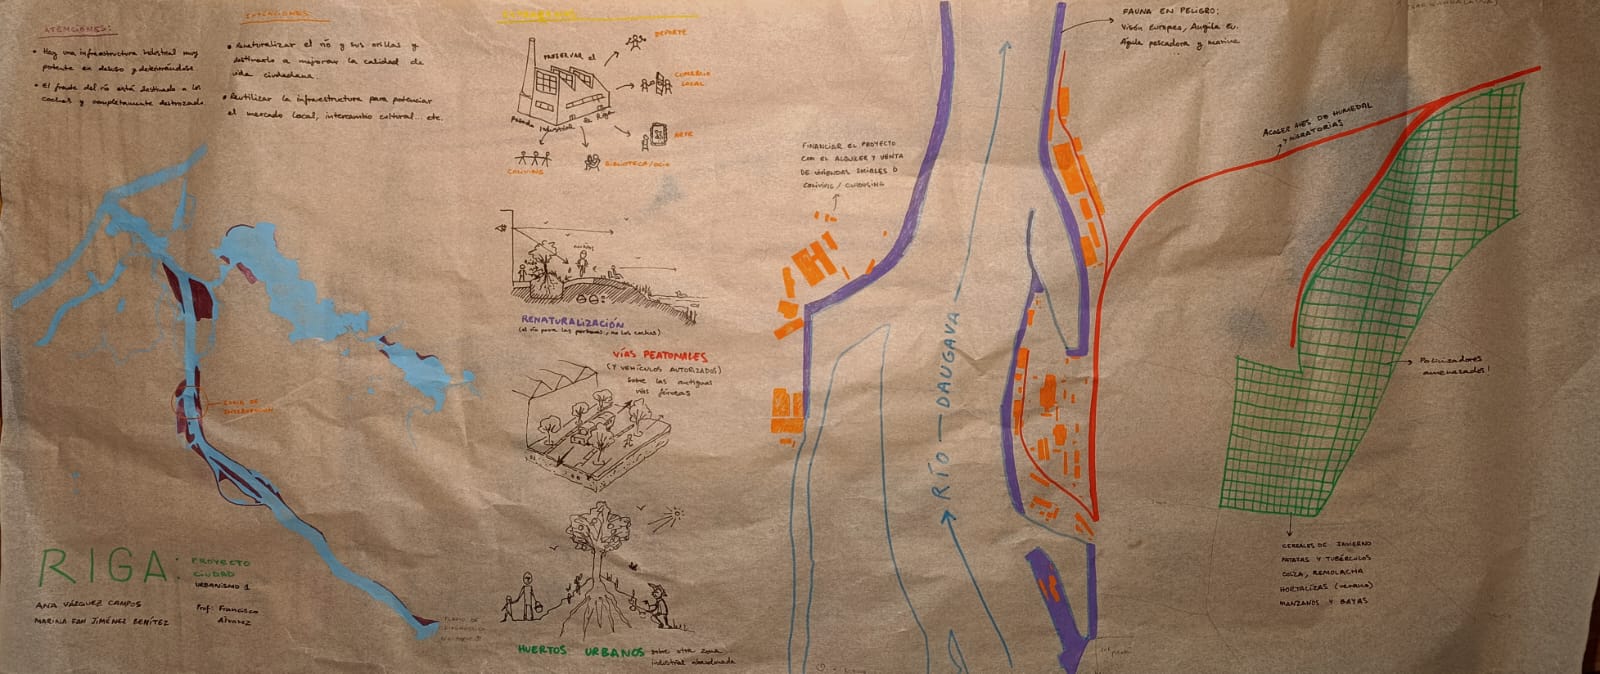 ATENCIONES:
• Hay una infraestructura industrial muy
potente en desuso y deteriorándose
• El frente del río está destinado a los
coches y completamente destrozado.
INTENCIONES
• Renaturalizar el río y sus orillas y
destinarlo a mejorar la calidad de
vida ciudadana.
• Reutilizar la infraestructura para potenciar
el mercado local, intercambio cultural... etc.
PRESERVAR el
Pasado Industrial de Riga
DEPORTE
COMERCIO
LOCAL
ARTE
BIBLIOTECA/OCIO
COLIVING
RENATURALIZACIÓN
(el río para las personas, no los coches)
VÍAS PEATONALES
(Y VEHÍCULOS AUTORIZADOS)
sobre las antiguas
vías férreas
HUERTOS URBANOS sobre otra zona
industrial abandonada
ZONA DE
INTERVENCIÓN
RIGA: PROYECTO
CIUDAD
URBANISMO 1
ANA VÁZQUEZ CAMPOS
MARINA FAN JIMÉNEZ BENÍTEZ
Prof: Francisco
Alvarez
PLANO DE
DIAGNÓSTICO
FINANCIAR EL PROYECTO
CON EL ALQUILER Y VENTA
DE VIVIENDAS SOCIALES O
COLIVING / COHOUSING
RÍO — DAUGAVA —
FAUNA EN PELIGRO:
Visón Europeo, Anguila Eu.
Águila pescadora y marina
ACOGER AVES DE HUMEDAL
Y MIGRATORIAS
Polinizadores
amenazados!
CEREALES DE INVIERNO
PATATAS Y TUBÉRCULOS
COLZA, REMOLACHA
HORTALIZAS (verano)
MANZANOS Y BAYAS